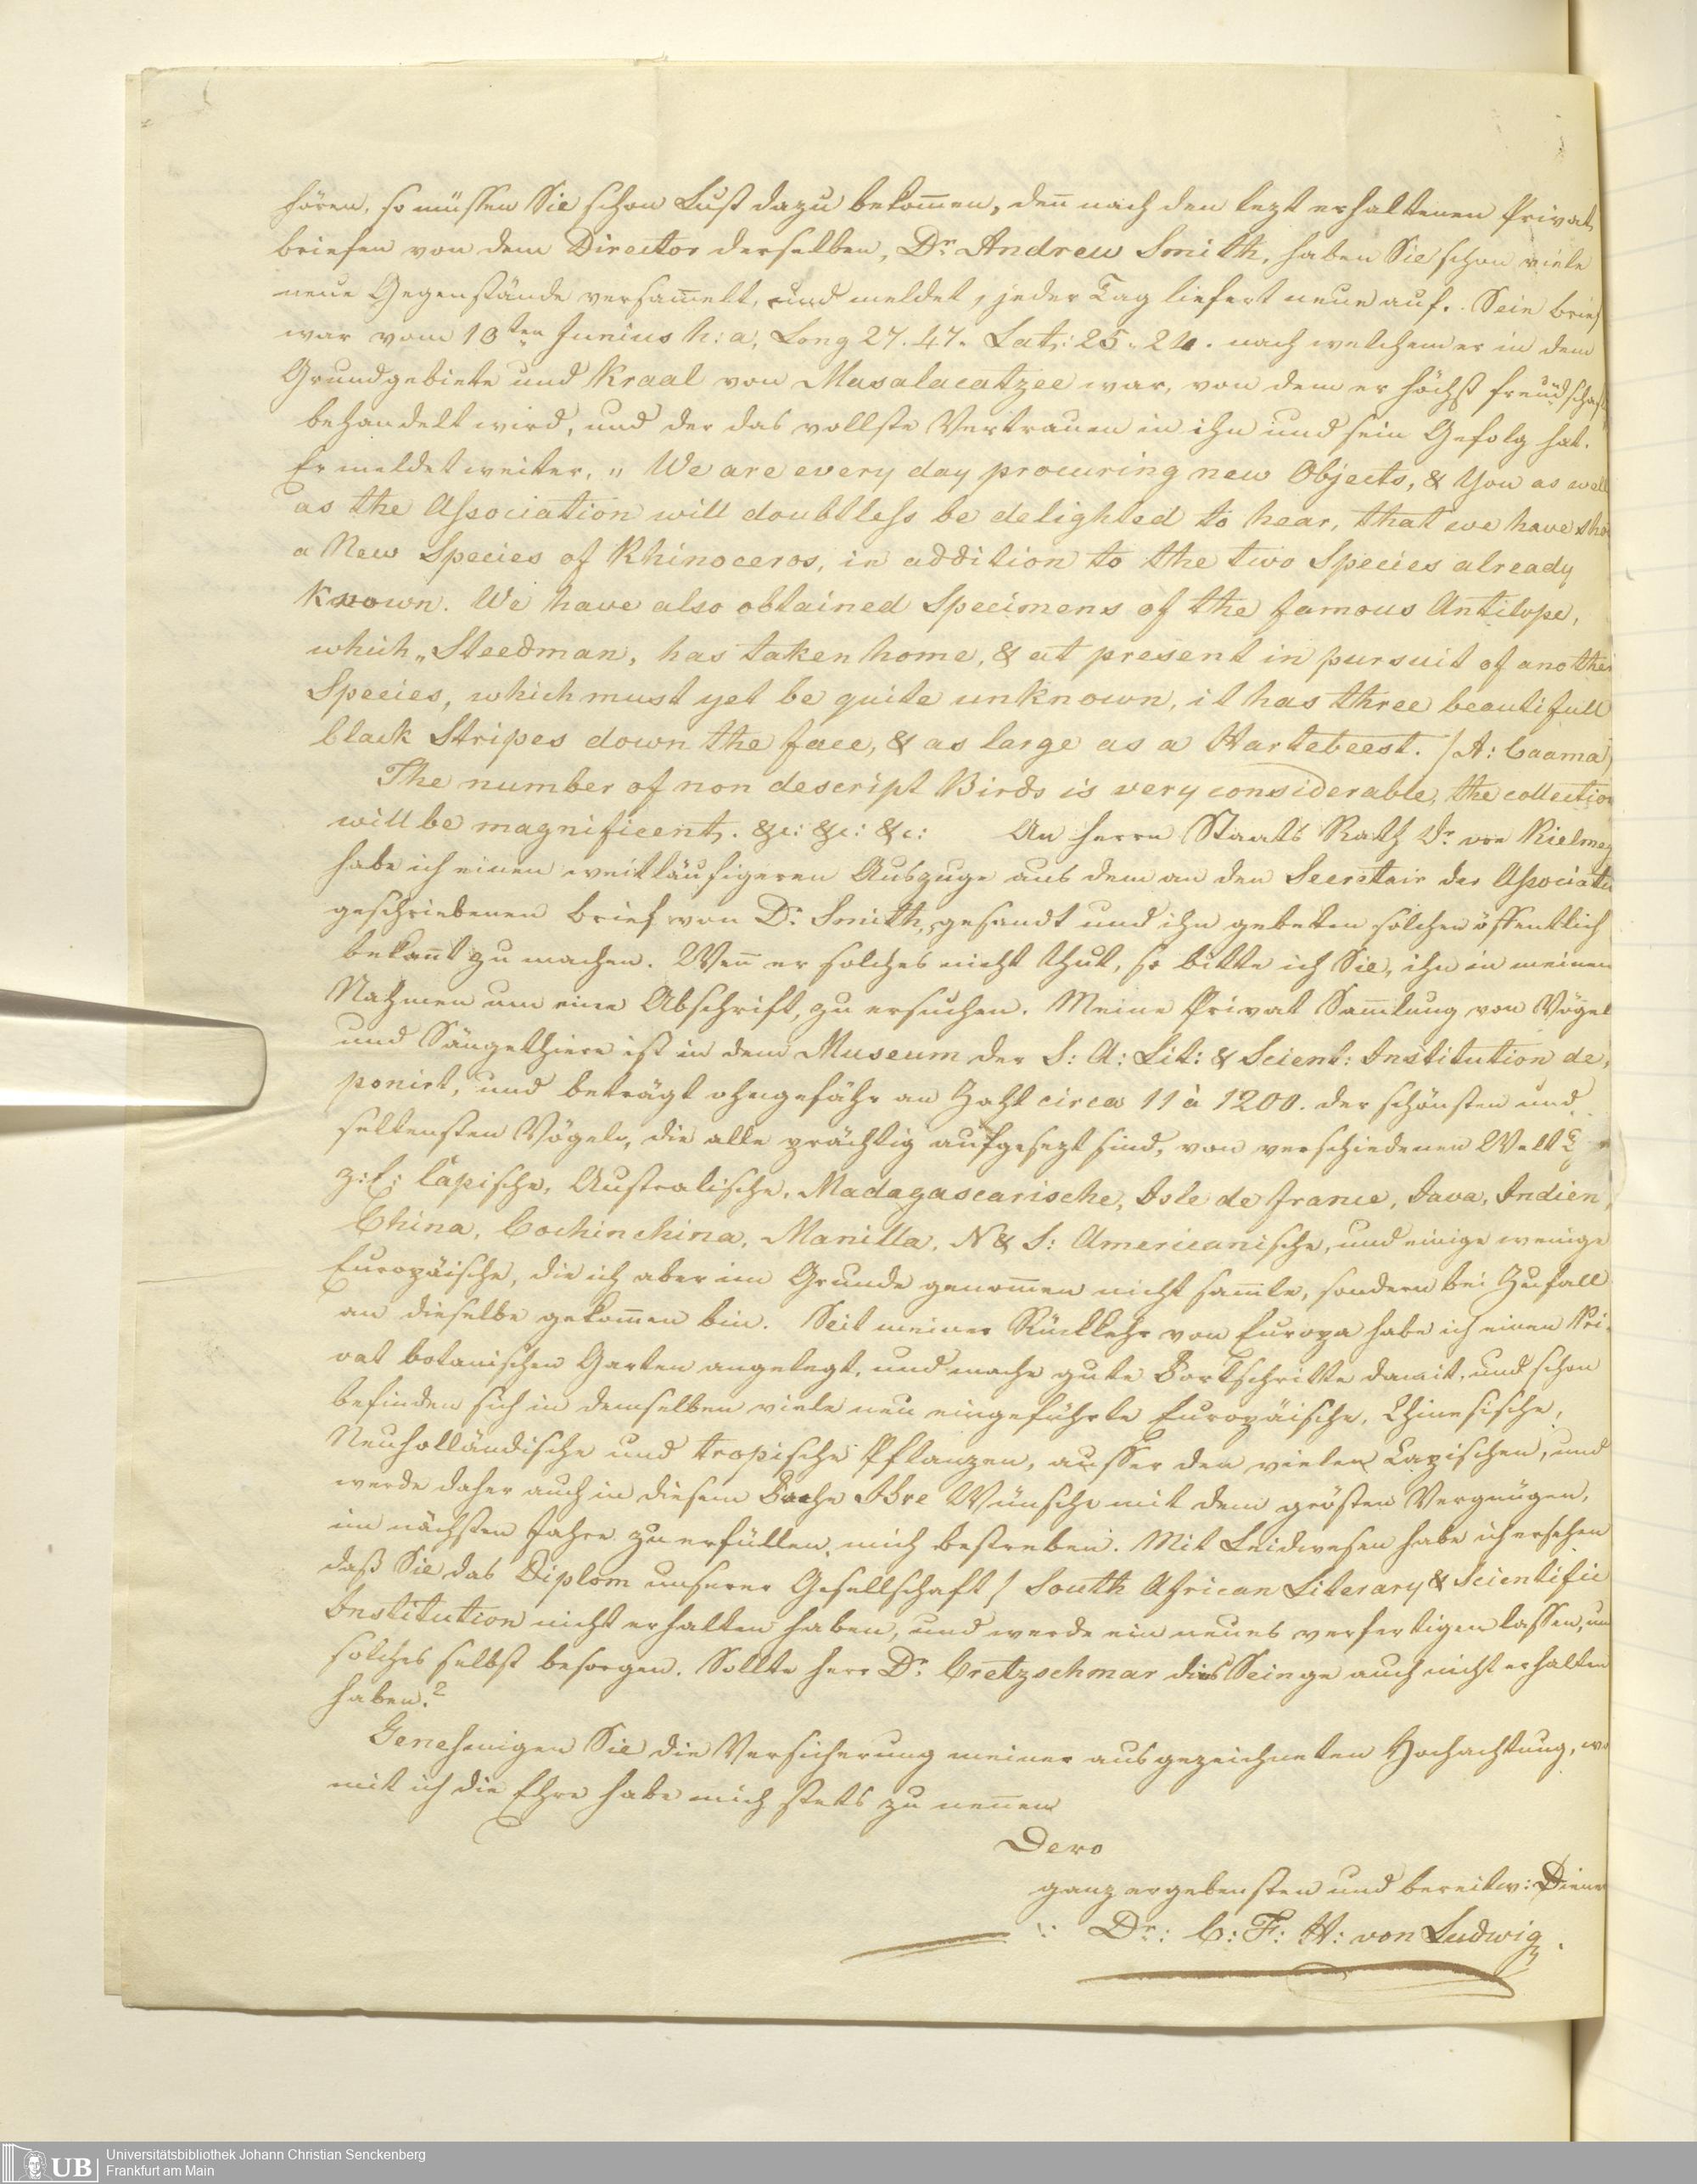 hören, so müssen Sie schon Lust dazu bekom̄en, den̄ nach den lezt erhaltenen Privat
briefen von dem Director derselben, Dr. Andrew Smith, haben Sie schon viele
neue Gegenstände versam̄elt, und meldet, jeder Tag liefert neue auf. Sein brief
war vom 10ten Junius h: a, Long 27. 47. Lat: 25. 24. nach welchem er in dem
Grundgebiete und Kraal von Masalacatzee war, von dem er höchst freūdschaf
behandelt wird, und der das vollste Vertrauen in ihn und sein Gefolg hat.
Er meldet weiter, „ We are every day procuring new Objects, & You as well
as the Association will doubtless be delighted to hear, that we have sho
a New Species of Rhinoceros, in addition to the two Species already
known. We have also obtained Specimens of the famous Antilope,
which „Steedman, has taken home, & at present in pursuit of another
Species, which must yet be quite unknown, it has three beautifull
black Stripes down the face, & as large as a Hartebeest. /A: Caama/
The number of non descript Birds is very considerable, the collection
will be magnificent. &c: &c: &c: An Herrn Staats Rath Dr. von Kielmey
habe ich einen weitläufigeren Auszuge aus dem an den Secretair der Associatio
geschriebenen brief von Dr. Smith, gesandt und ihn gebeten solchen öffentlich
bekan̄t zu machen. Wen̄ er solches nicht thut, so bitte ich Sie, ihn in meinen
Nahmen um eine Abschrift, zu ersuchen. Meine Privat Sam̄lung von Vögel
und Säugethiere ist in dem Museum der S: A: Lit: & Scient: Institution de,
ponirt, und beträgt ohngefähr an Zahl circa 11 à 1200. der schönsten und
seltensten Vögeln, die alle prächtig aufgesezt sind, von verschiedenen Welt
z: E: Capische, Australische, Madagascarische, Isle de france, Java, Indien,
China, Cochinchina, Manilla, N & S: Americanische, und einige wenige
Europäische, die ich aber im Grunde genom̄en nicht sam̄le, sondern bei Zufall
an dieselbe gekom̄en bin. Seit meiner Rückkehr von Europa habe ich einen Pri-
vat botanischen Garten angelegt, und mache gute Fortschritte damit, und schon
befinden sich in demselben viele neu eingeführte Europäische, Chinesische,
Neuholländische und tropische Pflanzen, ausser den vielen Capischen, und
werde daher auch in diesem Fache Ihre Wünsche mit dem grösten Vergnügen,
im nächsten Jahre zu erfüllen, mich bestreben. Mit Leidwesen habe ich ersehen
daß Sie das Diplom unserer Gesellschaft / South African Literary & Scientific
Institution nicht erhalten haben, und werde ein neues verfertigen lassen, un
solches selbst besorgen. Sollte Herr Dr. Cretzschmar das Seinge auch nicht erhalten
haben?
Genehmigen Sie die Versicherung meiner ausgezeichneten Hochachtung, wo
mit ich die Ehre habe mich stets zu nen̄en
Dero
ganz ergebensten und bereitw: Diener
Dr: C: F: H: von Ludwig.
UB Universitätsbibliothek Johann Christian Senckenberg
Frankfurt am Main